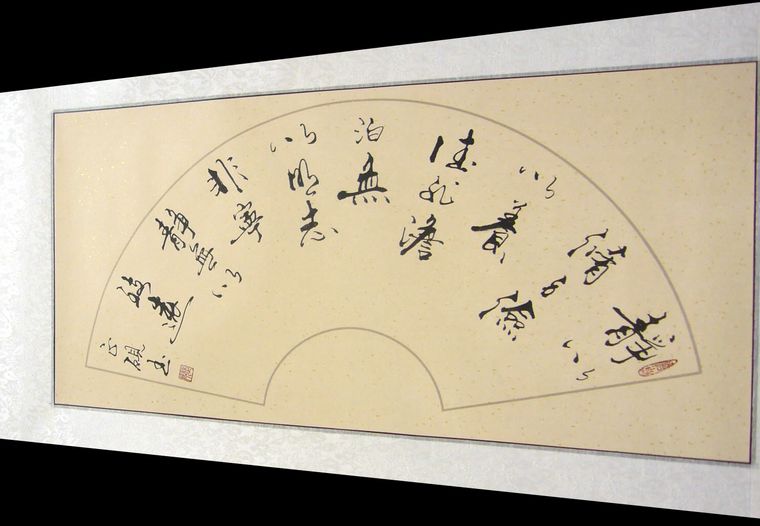 靜以
脩身儉
以養
德非澹
泊無
以明志
非寧
靜無以
致遠
硯书